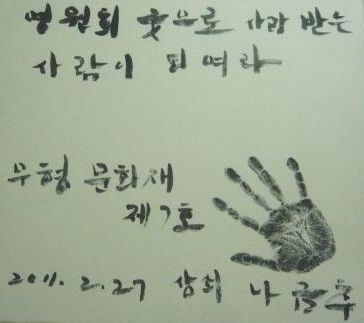 영원히 굿으로 사랑 받는
사람이 되여라
무형 문화재
제7호
2011. 2. 27 상쇠 나금추